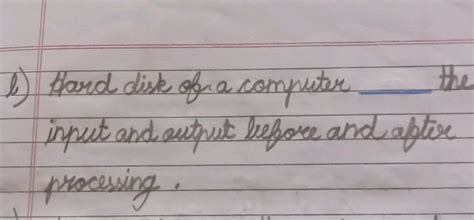 b) Hard disk of a computer ______ the
input and output before and after
processing.